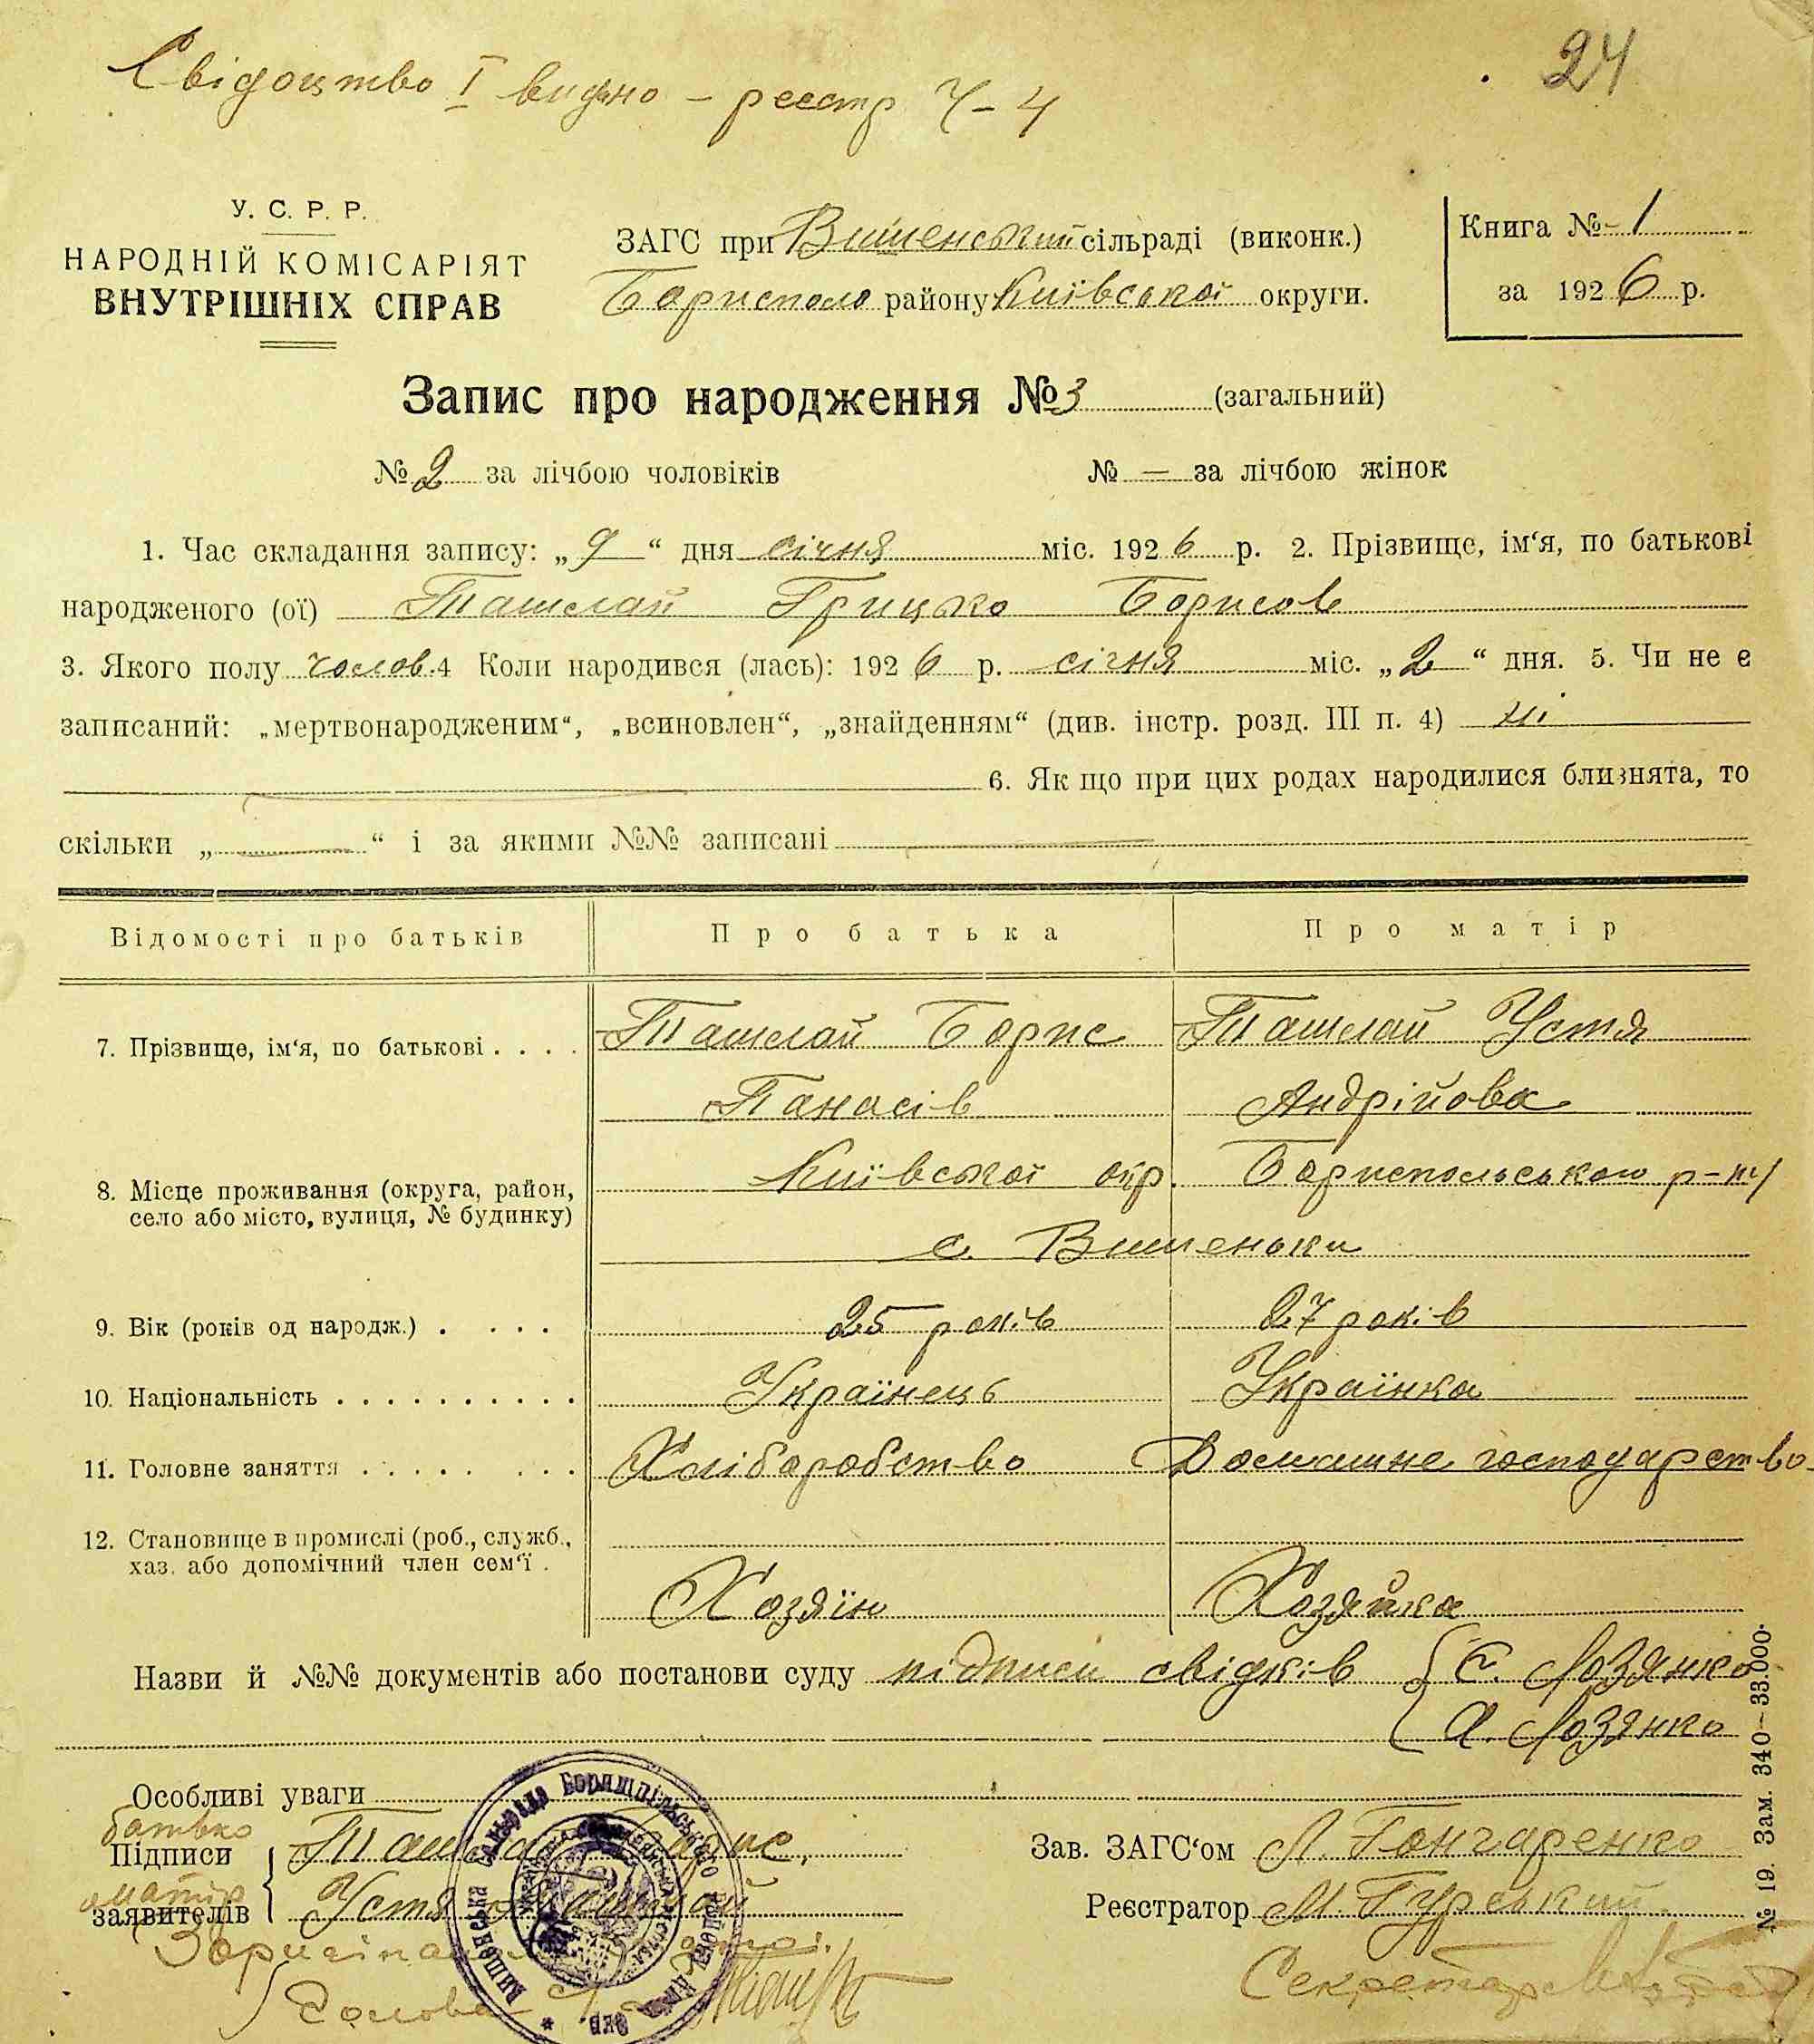 Свідоцтво I видано – реєстр Ч–4
24
У. С. Р. Р.
НАРОДНІЙ КОМІСАРІЯТ
ВНУТРІШНІХ СПРАВ
ЗАГС при Вишенській сільраді (виконк.)
Бориспол. району Київської округи.
Книга №– 1
за 1926 р.
Запис про народження № 3 (загальний)
№ 2 за лічбою чоловіків № — за лічбою жінок
1. Час складання запису: „ 9 “ дня січня міс. 1926 р. 2. Прізвище, ім‘я, по батькові
народженого (ої) Ташлай Грицько Борисов
3. Якого полу чолов. 4 Коли народився (лась): 1926 р. січня міс. „ 2 “ дня. 5. Чи не є
записаний: „мертвонародженим“, „всиновлен“, „знайденням“ (див. інстр. розд. III п. 4) ні
6. Як що при цих родах народилися близнята, то
скільки „ — “ і за якими №№ записані —
Відомості про батьків Про батька Про матір
7. Прізвище, ім‘я, по батькові . . . . Ташлай Борис Ташлай Устя
Панасів Андрійова
8. Місце проживання (округа, район, Київської окр. Бориспольського р-ну
село або місто, вулиця, № будинку)
с. Вишеньки
9. Вік (років од народж.) . . . . . 25 років 27 років
10. Національність . . . . . . . . . . Українець Українка
11. Головне заняття . . . . . . . . Хліборобство Домашнє господарство
12. Становище в промислі (роб., служб.,
хаз. або допомічний член сем‘ї .
Хозяїн Хозяйка
Назви й №№ документів або постанови суду підписи свідків { Є. Лозянко
А. Лозянко
Особливі уваги
батько
Підписи Ташлай Борис, Зав. ЗАГС‘ом Л. Гончаренко
матір
заявителів Устя Ташлай Реєстратор М. Гурський
З оригіналом
Голова Секретар
Вишенська сільрада Бориспільського
№ 19. Зам. 340–33.000.